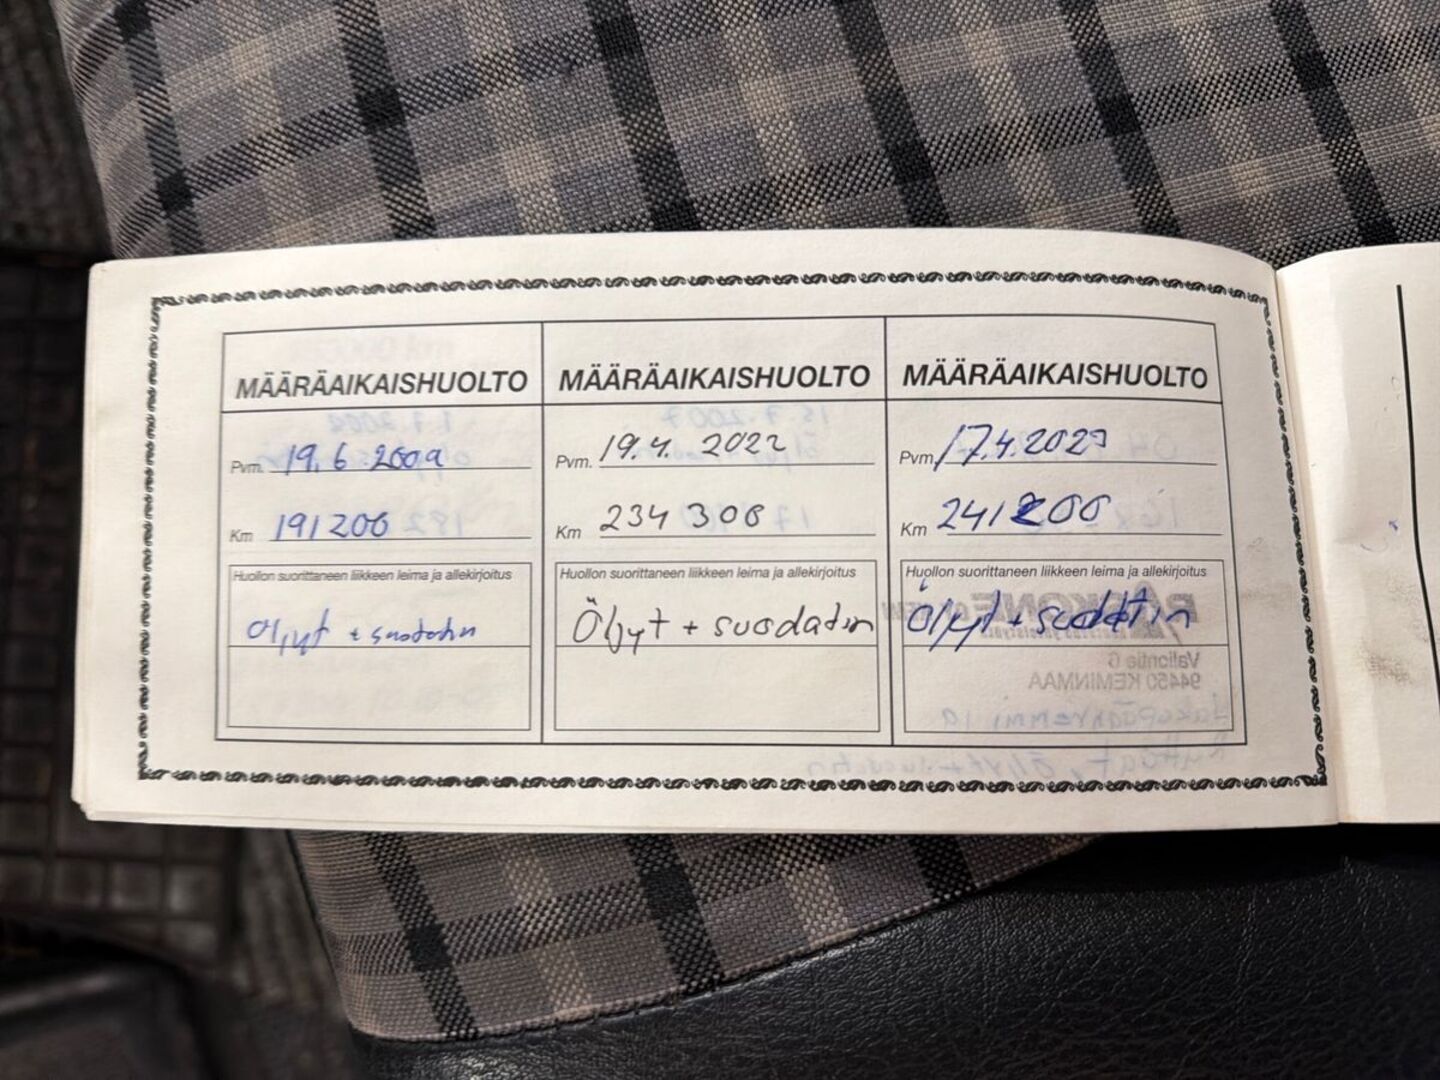 MÄÄRÄAIKAISHUOLTO
Pvm. 19.6.2009
Km 191200
Huollon suorittaneen liikkeen leima ja allekirjoitus
Öljyt + suodatin
MÄÄRÄAIKAISHUOLTO
Pvm. 19.4.2022
Km 234 300
Huollon suorittaneen liikkeen leima ja allekirjoitus
Öljyt + suodatin
MÄÄRÄAIKAISHUOLTO
Pvm. 17.4.2023
Km 241200
Huollon suorittaneen liikkeen leima ja allekirjoitus
Öljyt + suodatin
Valiontie 6
94450 KEMINMAA